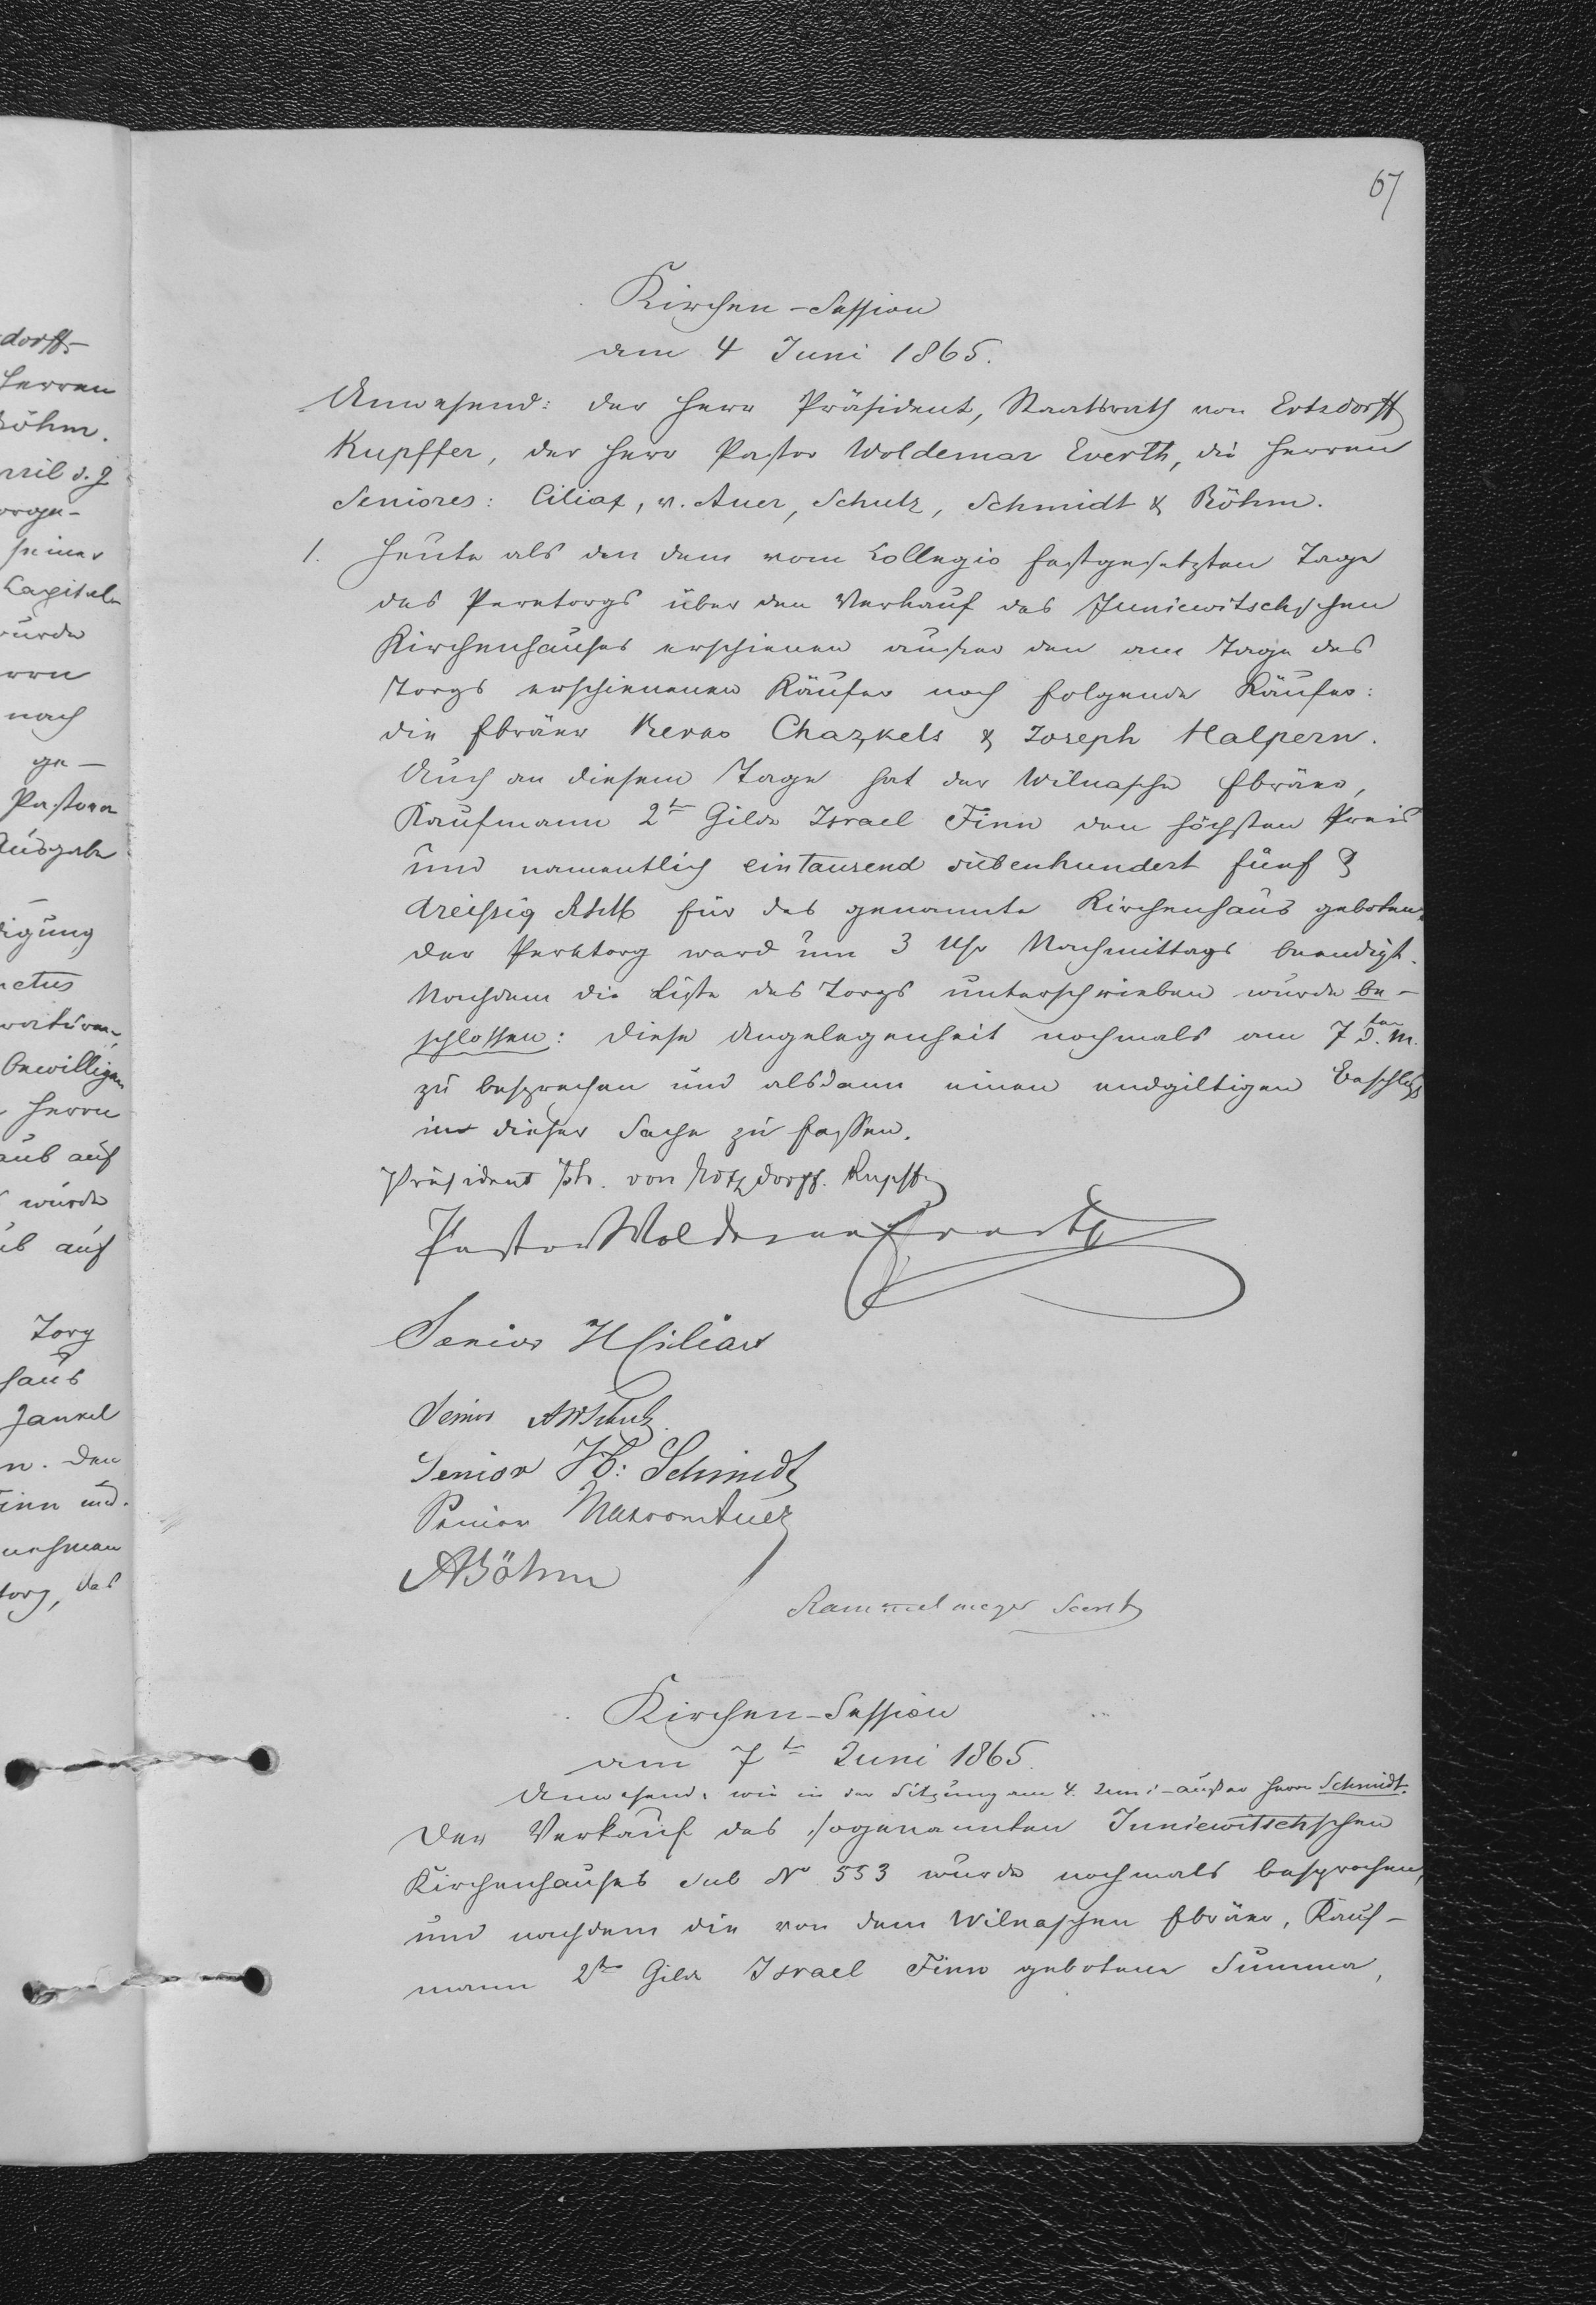 67
Kirchen-Session
am 4 Juni 1865.
Anwesend: der Herr Präsident, Staatsrath von Ertzdorff
Kupffer, der Herr Pastor Woldemar Everth, die Herren
Seniores: Ciliax, v. Auer, Schulz, Schmidt & Böhm.
1. Heute als den dem vom Collegio festgesetzten Tage
des Peretorgs über den Verkauf des Juniewitschschen
Kirchenhauses erschienen außer den am Tage des
Torgs erschienenen Käufer noch folgende Käufer:
die Ebräer Chazkels & Joseph Halpern.
Auch an diesem Tage hat der Wilnasche Ebräer,
Kaufmann 2ter Gilde Israel Finn den höchsten Preis
und namentlich eintausend siebenhundert fünf &
dreissig für das genannte Kirchenhaus geboten.
Der Peretorg ward um 3 Uhr Nachmittags beendigt.
Nachdem die Liste des Torgs unterschrieben wurde be-
schlossen: diese Angelegenheit nochmals am 7ten d. M.
zu besprechen und alsdann einen endgiltigen Beschluß
in dieser Sache zu fassen.
Präsident von Ertzdorff-Kupffer
Pastor Woldemar Everth
Senior H Ciliax
Senior AWSchulz.
Senior H: Schmidt
Senior von Auer
ABöhm
Rammelmeyer Secret
Kirchen-Session
am 7ten Juni 1865.
Anwesend: wie in der Sitzung am 4. Juni - außer Herrn Schmidt.
Der Verkauf des sogenannten Juniewitschschen
Kirchenhauses sub No 553 wurde nochmals besprochen,
und nachdem die von dem Wilnaschen Ebräer, Kauf-
mann 2ter Gilde Israel Finn gebotene Summa,
dorff-
Herren
Böhm.
seiner
Capital
wurde
nach
ge-
Pastora
Ausgabe
bewilligen
Herrn
auf
wurde
auf
Torg
haus
Jankel
n. Den
Finn und
torg, das